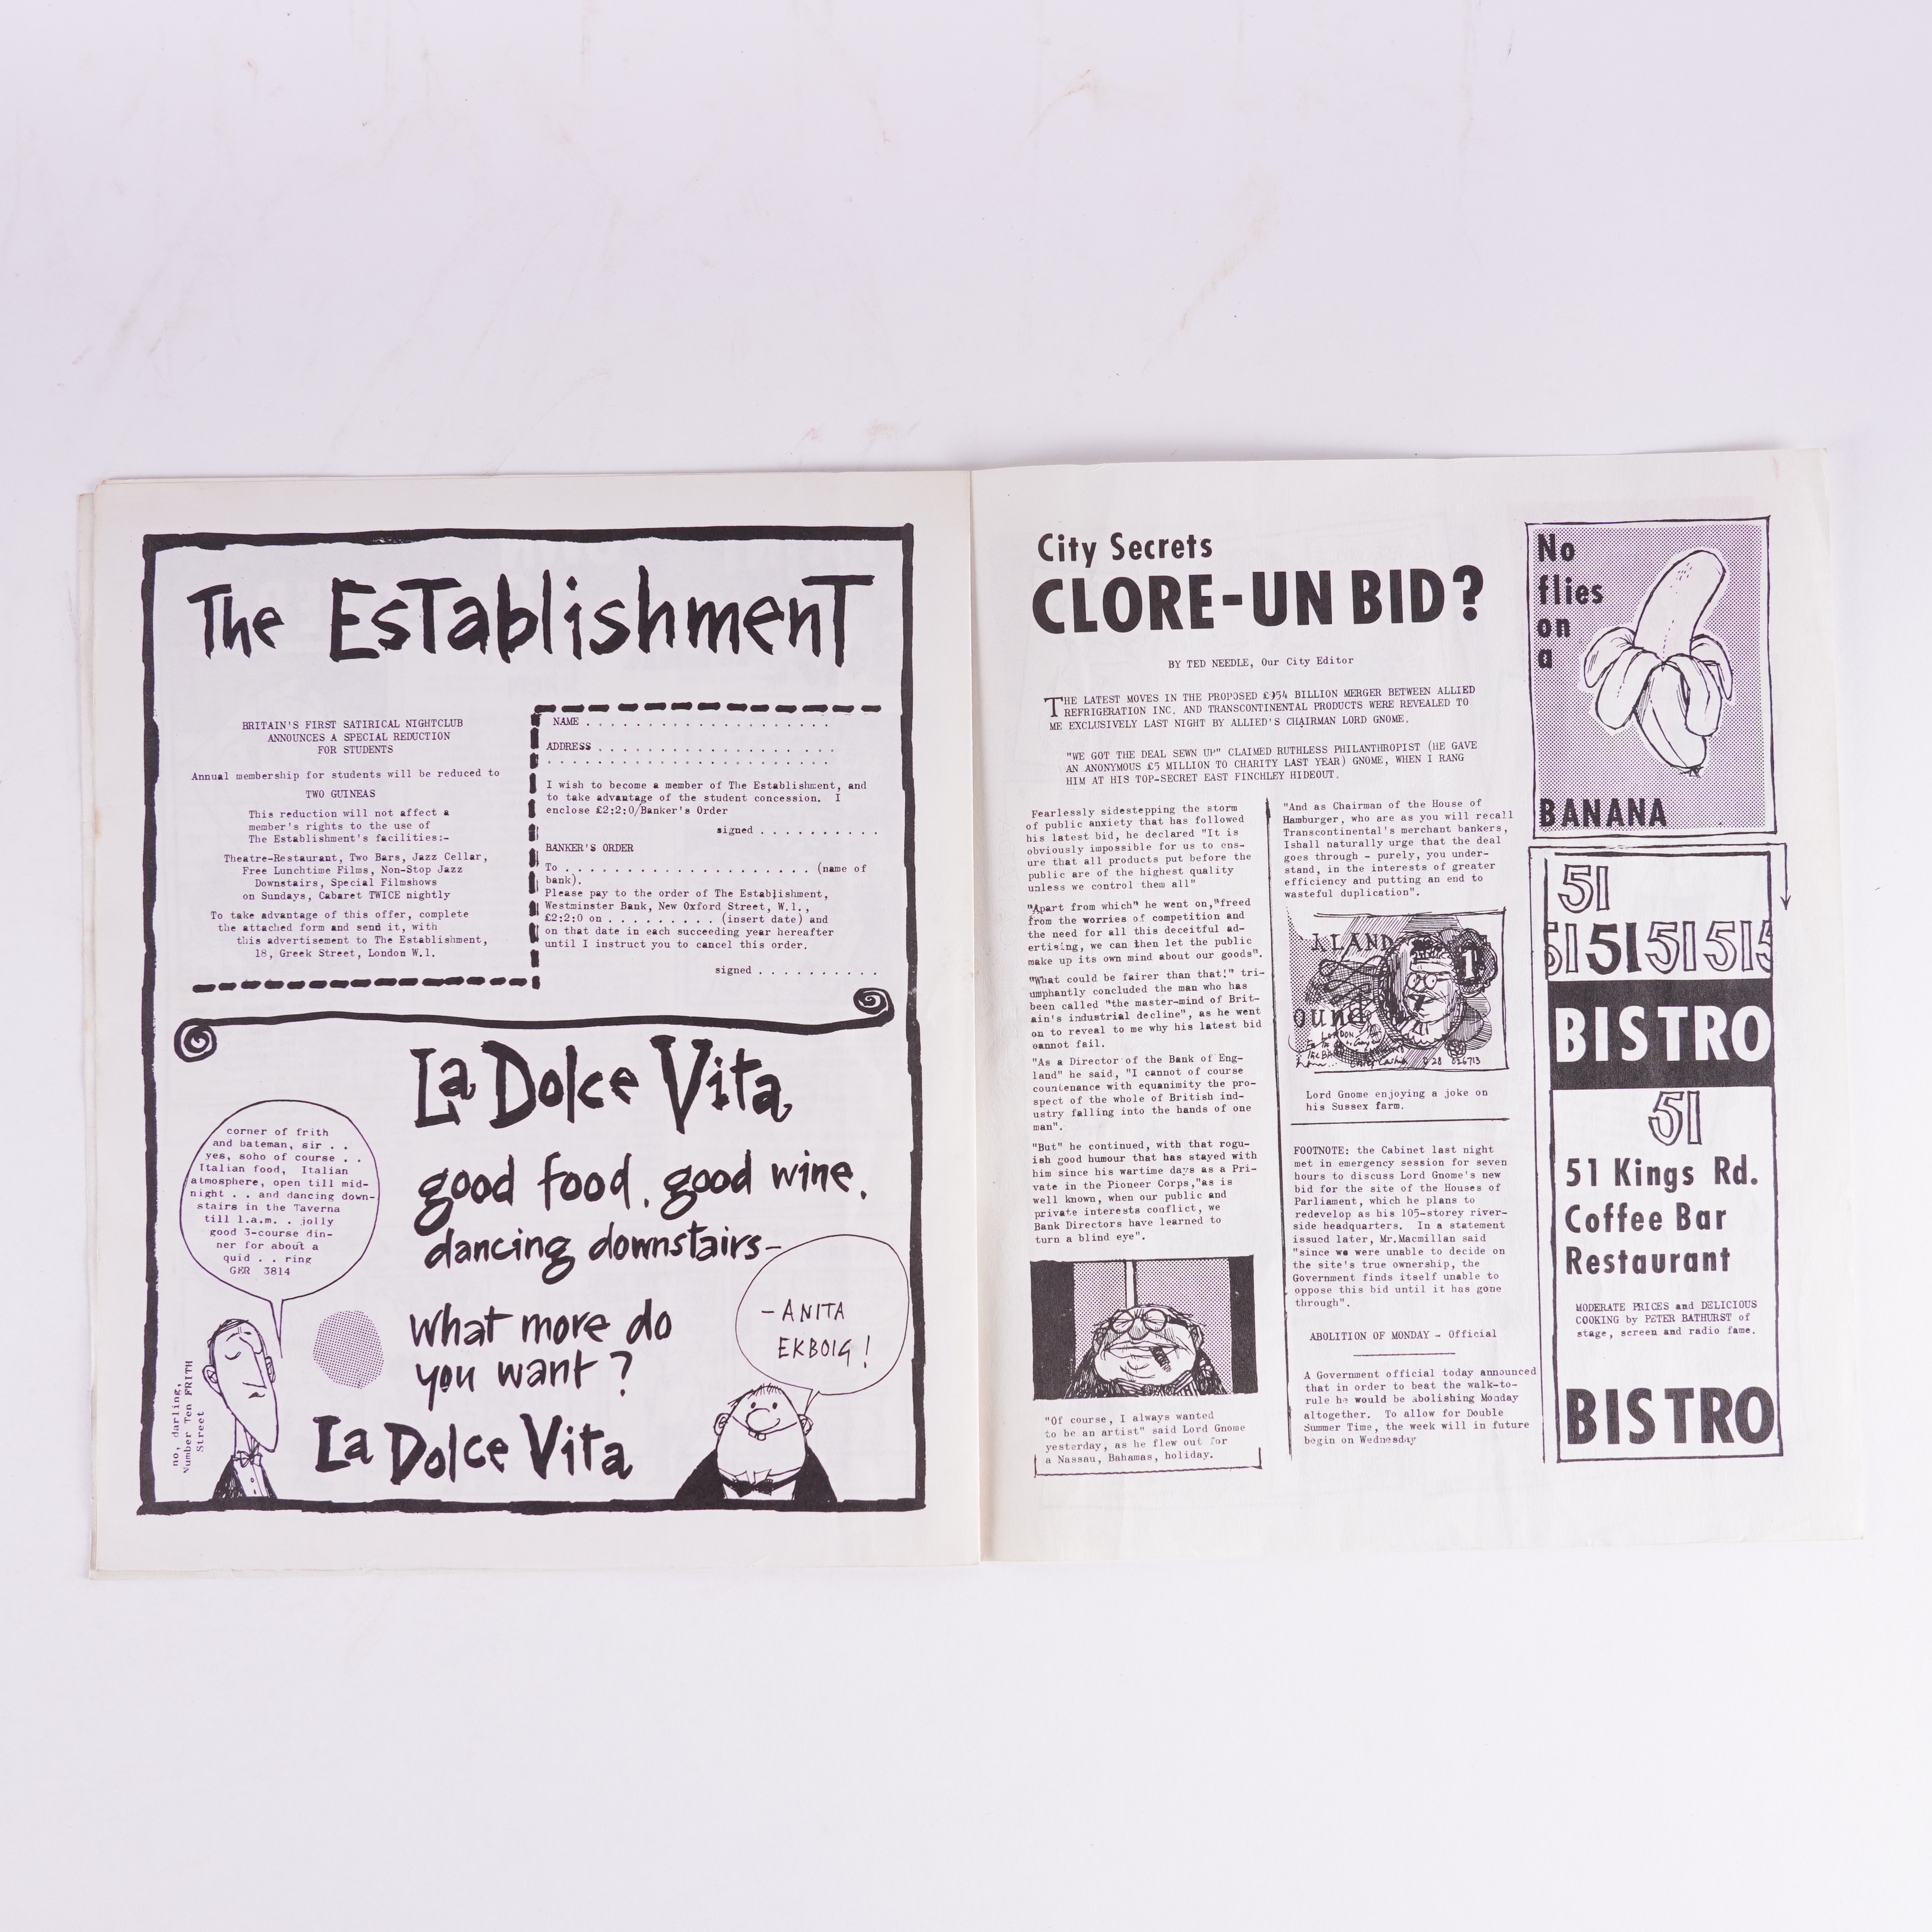 The Establishment
BRITAIN'S FIRST SATIRICAL NIGHTCLUB
ANNOUNCES A SPECIAL REDUCTION
FOR STUDENTS
Annual membership for students will be reduced to
TWO GUINEAS
This reduction will not affect a
member's rights to the use of
The Establishment's facilities:-
Theatre-Restaurant, Two Bars, Jazz Cellar,
Free Lunchtime Films, Non-Stop Jazz
Downstairs, Special Filmshows
on Sundays, Cabaret TWICE nightly
To take advantage of this offer, complete
the attached form and send it, with
this advertisement to The Establishment,
18, Greek Street, London W.1.
NAME . . . . . . . . . . . . . . . . . . . .
ADDRESS . . . . . . . . . . . . . . . . . . .
. . . . . . . . . . . . . . . . . . . . . . .
I wish to become a member of The Establishment, and
to take advantage of the student concession. I
enclose £2:2:0/Banker's Order
signed . . . . . . . . . .
BANKER'S ORDER
To . . . . . . . . . . . . . . . . . . . . (name of
bank).
Please pay to the order of The Establishment,
Westminster Bank, New Oxford Street, W.1.,
£2:2:0 on . . . . . . . . . (insert date) and
on that date in each succeeding year hereafter
until I instruct you to cancel this order.
signed . . . . . . . . . .
La Dolce Vita
good food, good wine,
dancing downstairs-
what more do
you want?
La Dolce Vita
corner of frith
and bateman, sir . .
yes, soho of course . .
Italian food, Italian
atmosphere, open till mid-
night . . and dancing down-
stairs in the Taverna
till 1.a.m. . jolly
good 3-course din-
ner for about a
quid . . ring
GER 3814
no, darling,
Number Ten FRITH
Street
- ANITA
EKBOIG!
City Secrets
CLORE-UN BID?
BY TED NEEDLE, Our City Editor
THE LATEST MOVES IN THE PROPOSED £954 BILLION MERGER BETWEEN ALLIED
REFRIGERATION INC. AND TRANSCONTINENTAL PRODUCTS WERE REVEALED TO
ME EXCLUSIVELY LAST NIGHT BY ALLIED'S CHAIRMAN LORD GNOME.
"WE GOT THE DEAL SEWN UP" CLAIMED RUTHLESS PHILANTHROPIST (HE GAVE
AN ANONYMOUS £5 MILLION TO CHARITY LAST YEAR) GNOME, WHEN I RANG
HIM AT HIS TOP-SECRET EAST FINCHLEY HIDEOUT.
Fearlessly sidestepping the storm
of public anxiety that has followed
his latest bid, he declared "It is
obviously impossible for us to ens-
ure that all products put before the
public are of the highest quality
unless we control them all"
"Apart from which" he went on,"freed
from the worries of competition and
the need for all this deceitful ad-
ertising, we can then let the public
make up its own mind about our goods".
"What could be fairer than that!" tri-
umphantly concluded the man who has
been called "the master-mind of Brit-
ain's industrial decline", as he went
on to reveal to me why his latest bid
cannot fail.
"As a Director of the Bank of Eng-
land" he said, "I cannot of course
countenance with equanimity the pro-
spect of the whole of British ind-
ustry falling into the hands of one
man".
"But" he continued, with that rogu-
ish good humour that has stayed with
him since his wartime days as a Pri-
vate in the Pioneer Corps,"as is
well known, when our public and
private interests conflict, we
Bank Directors have learned to
turn a blind eye".
"Of course, I always wanted
to be an artist" said Lord Gnome
yesterday, as he flew out for
a Nassau, Bahamas, holiday.
"And as Chairman of the House of
Hamburger, who are as you will recall
Transcontinental's merchant bankers,
Ishall naturally urge that the deal
goes through - purely, you under-
stand, in the interests of greater
efficiency and putting an end to
wasteful duplication".
LAND
1
ound
LONDON
28 026713
Lord Gnome enjoying a joke on
his Sussex farm.
FOOTNOTE: the Cabinet last night
met in emergency session for seven
hours to discuss Lord Gnome's new
bid for the site of the Houses of
Parliament, which he plans to
redevelop as his 105-storey river-
side headquarters. In a statement
issued later, Mr.Macmillan said
"since we were unable to decide on
the site's true ownership, the
Government finds itself unable to
oppose this bid until it has gone
through".
ABOLITION OF MONDAY - Official
A Government official today announced
that in order to beat the walk-to-
rule he would be abolishing Monday
altogether. To allow for Double
Summer Time, the week will in future
begin on Wednesday
No
flies
on
a
BANANA
51
51 51 51 51 5
BISTRO
51
51 Kings Rd.
Coffee Bar
Restaurant
MODERATE PRICES and DELICIOUS
COOKING by PETER BATHURST of
stage, screen and radio fame.
BISTRO